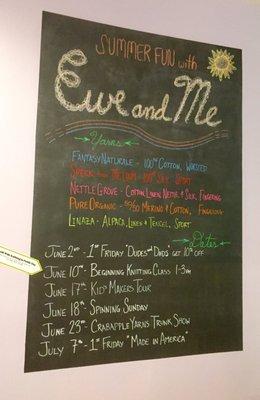 SUMMER FUN with
Ewe and Me
Yarns
FANTASY NATURALE - 100% COTTON, WORSTED
SPORT
NETTLE GROVE - COTTON, LINEN, NETTLE & SILK, FINGERING
PURE ORGANIC - 50/50 MERINO & COTTON, FINGERING
LINAZA - ALPACA, LINEN & TENCEL, SPORT
Dates
JUNE 2ND - 1ST FRIDAY "DUDES AND DADS" GET 10% OFF
JUNE 10TH - BEGINNING KNITTING CLASS 1-3PM
JUNE 17TH - KIDS MAKERS TOUR
JUNE 18TH - SPINNING SUNDAY
JUNE 23RD - CRABAPPLE YARNS TRUNK SHOW
JULY 7TH - 1ST FRIDAY "MADE IN AMERICA"